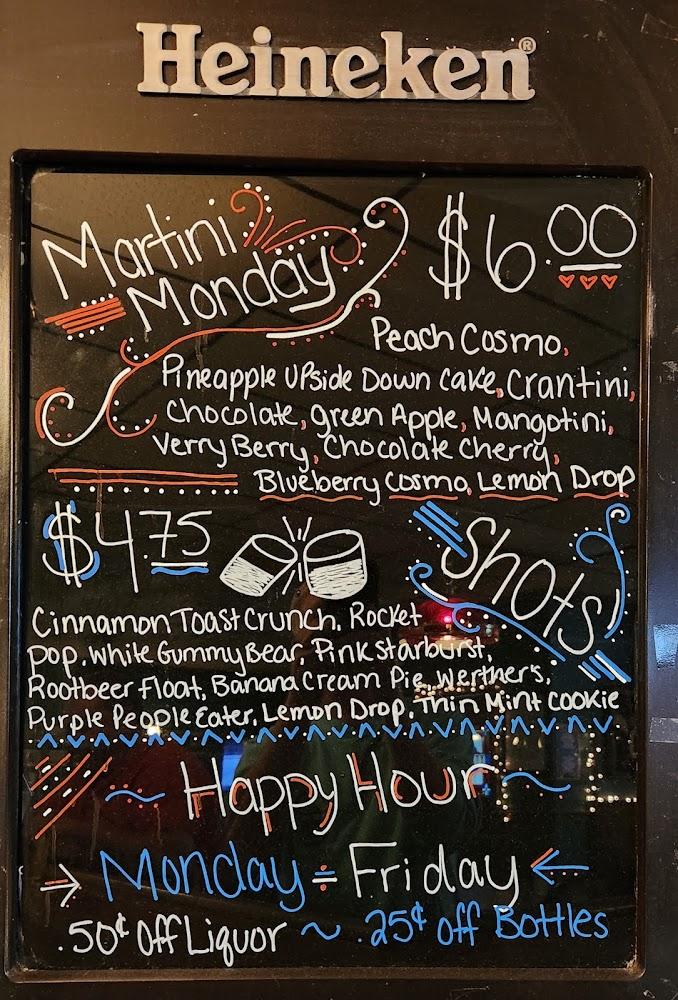 Heineken®
Martini
Monday
$6.00
Peach Cosmo,
Pineapple Upside Down Cake, Crantini,
Chocolate, green Apple, Mangotini,
Verry Berry, Chocolate Cherry,
Blueberry Cosmo, Lemon Drop
$4.75
Shots!
Cinnamon Toast Crunch, Rocket
Pop, White Gummy Bear, Pink Starburst,
Rootbeer Float, Banana Cream Pie, Werther's,
Purple People Eater, Lemon Drop, Thin Mint Cookie
~ Happy Hour ~
→ Monday - Friday ←
.50¢ Off Liquor ~ .25¢ off Bottles